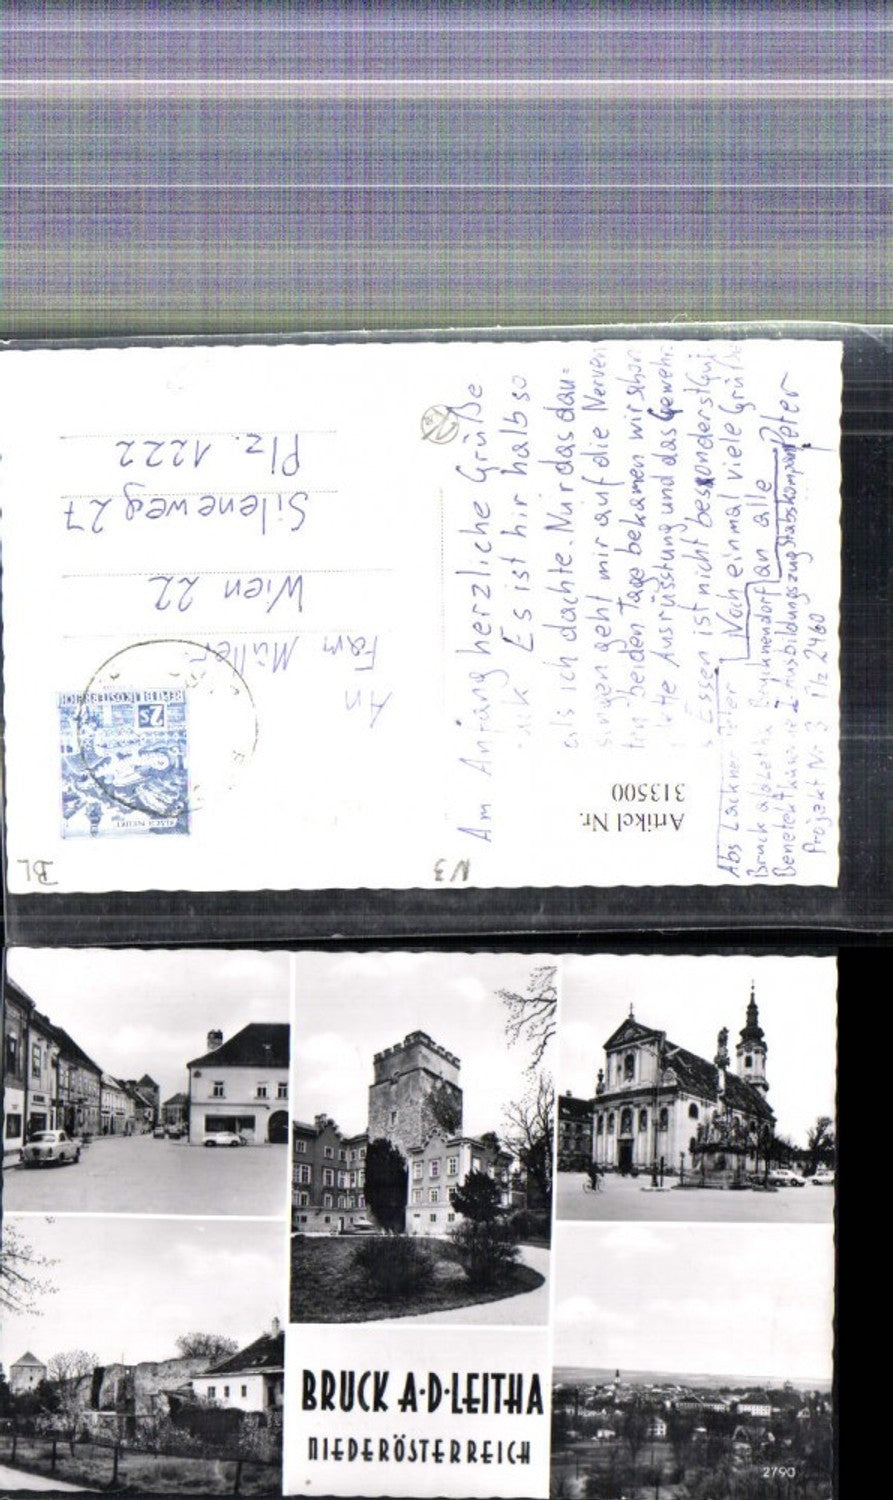 Am Anfang herzliche Grüße
Es ist hir halb so
als ich dachte. Nur das dau=
singen geht mir auf die Nerven
beiden Tage bekamen wir schon
Ausrüstung und das Gewehr.
Essen ist nicht besonderst gut
Noch einmal viele Grüße
an alle Peter
Abs Lackner Peter
Bruck a/d Leitha Bruckneudorf
Benedek Ausbildungszug Stabskompan
Projekt Nr 3 Plz 2460
An
Fam Müller
Wien 22
Sileneweg 27
Plz. 1222
REPUBLIK ÖSTERREICH
2s
Artikel Nr.
313500
N3
BL
BRUCK A·D·LEITHA
NIEDERÖSTERREICH
2790